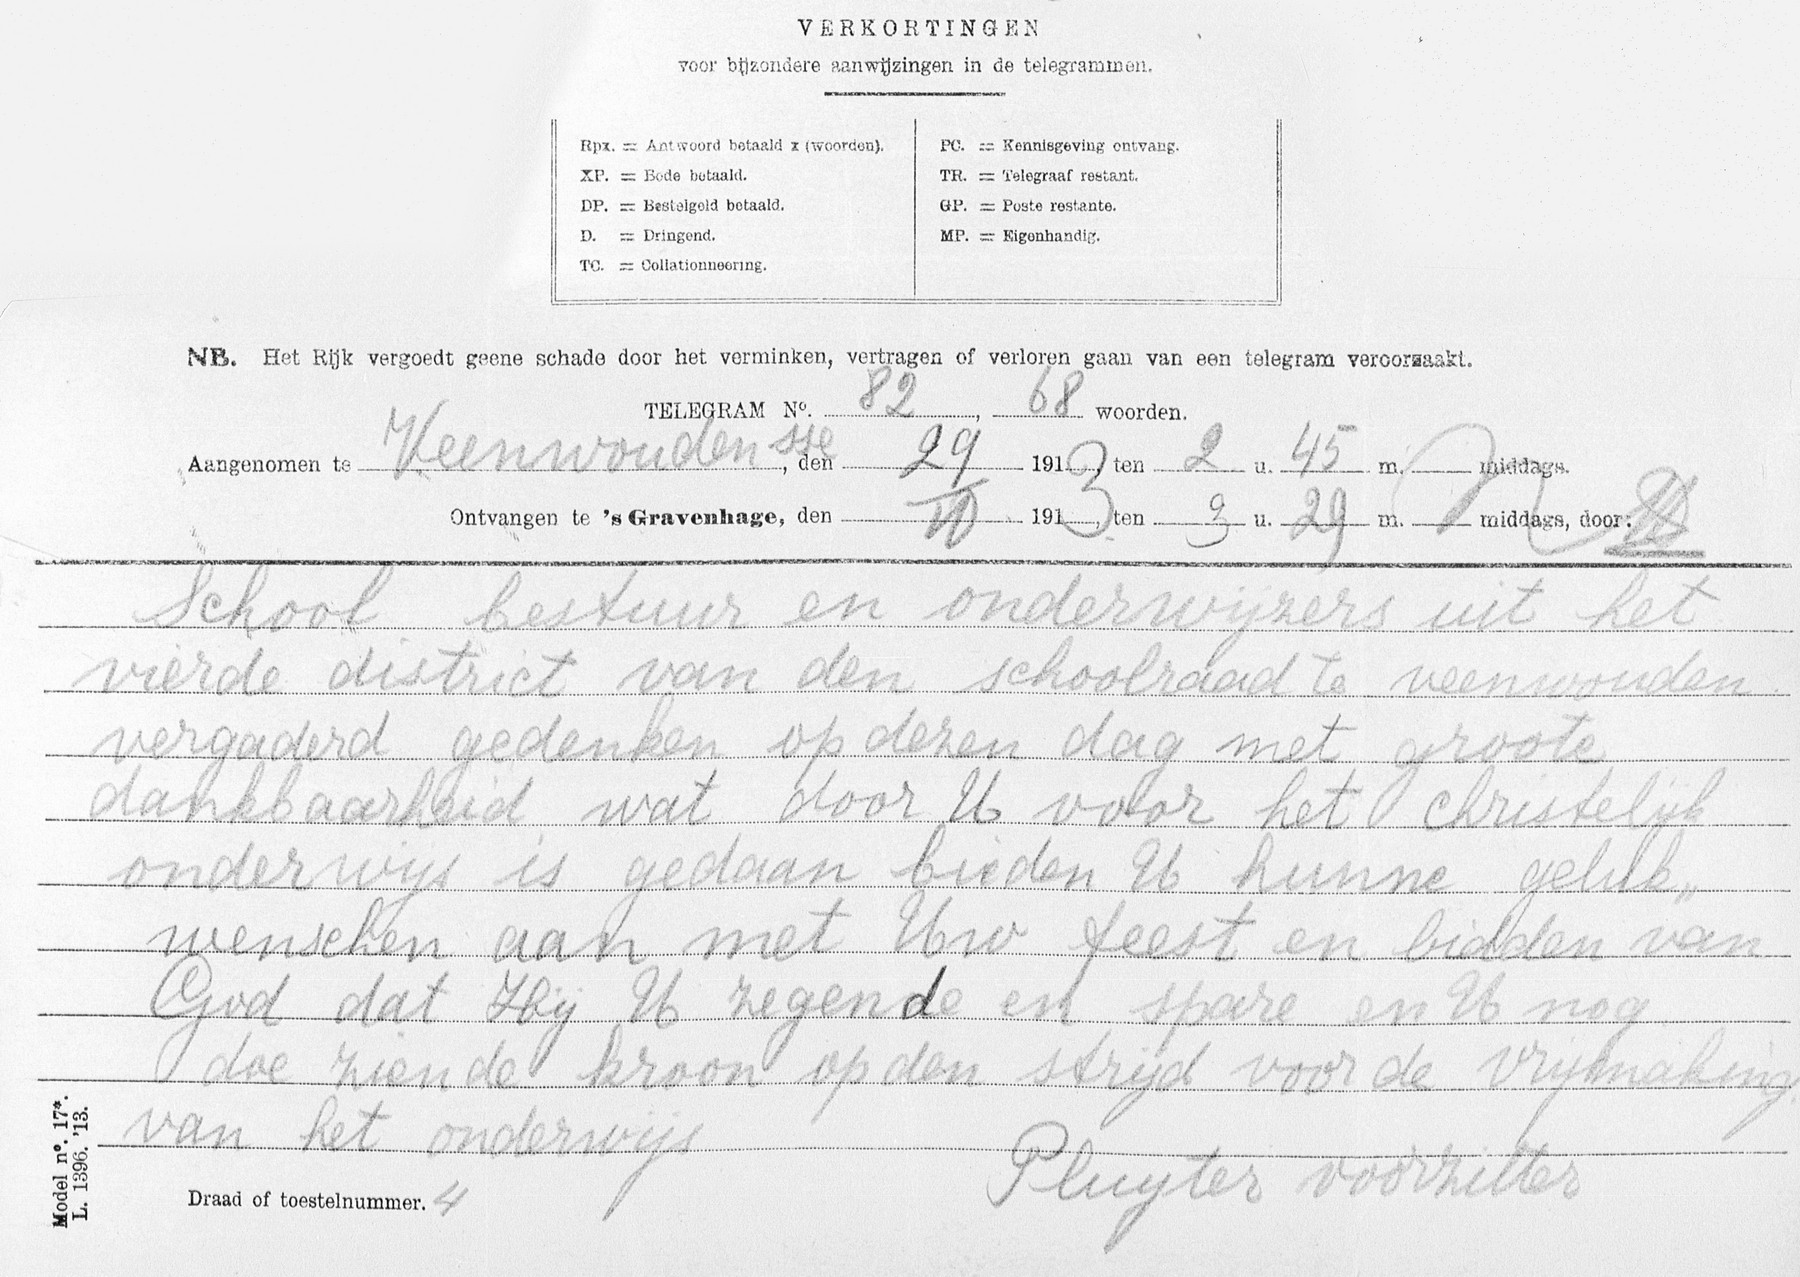 VERKORTINGEN
voor bijzondere aanwijzingen in de telegrammen.
Rpx. = Antwoord betaald x (woorden).
XP. = Bode betaald.
DP. = Bestelgeld betaald.
D. = Dringend.
TC. = Collationneering.
PC. = Kennisgeving ontvang.
TR. = Telegraaf restant.
GP. = Poste restante.
MP. = Eigenhandig.
NB. Het Rijk vergoedt geene schade door het verminken, vertragen of verloren gaan van een telegram veroorzaakt.
TELEGRAM No. 82, 68 woorden.
Aangenomen te Veenwouden sse, den 29 1913 ten 2 u. 45 m. middags.
Ontvangen te 's Gravenhage, den 10 1913 ten 3 u. 29 m. middags, door:
School bestuur en onderwijzers uit het
vierde district van den schoolraad te veenwouden
vergaderd gedenken op dezen dag met groote
dankbaarheid wat door U voor het christelijk
onderwijs is gedaan bieden U hunne geluk„
wenschen aan met Uw feest en bidden van
God dat Hij U zegende en spare en U nog
doe ziende kroon op den strijd voor de vrijmaking
van het onderwijs
Pluyter voorzitter
Draad of toestelnummer. 4
Model no. 17*.
L. 1396. '13.